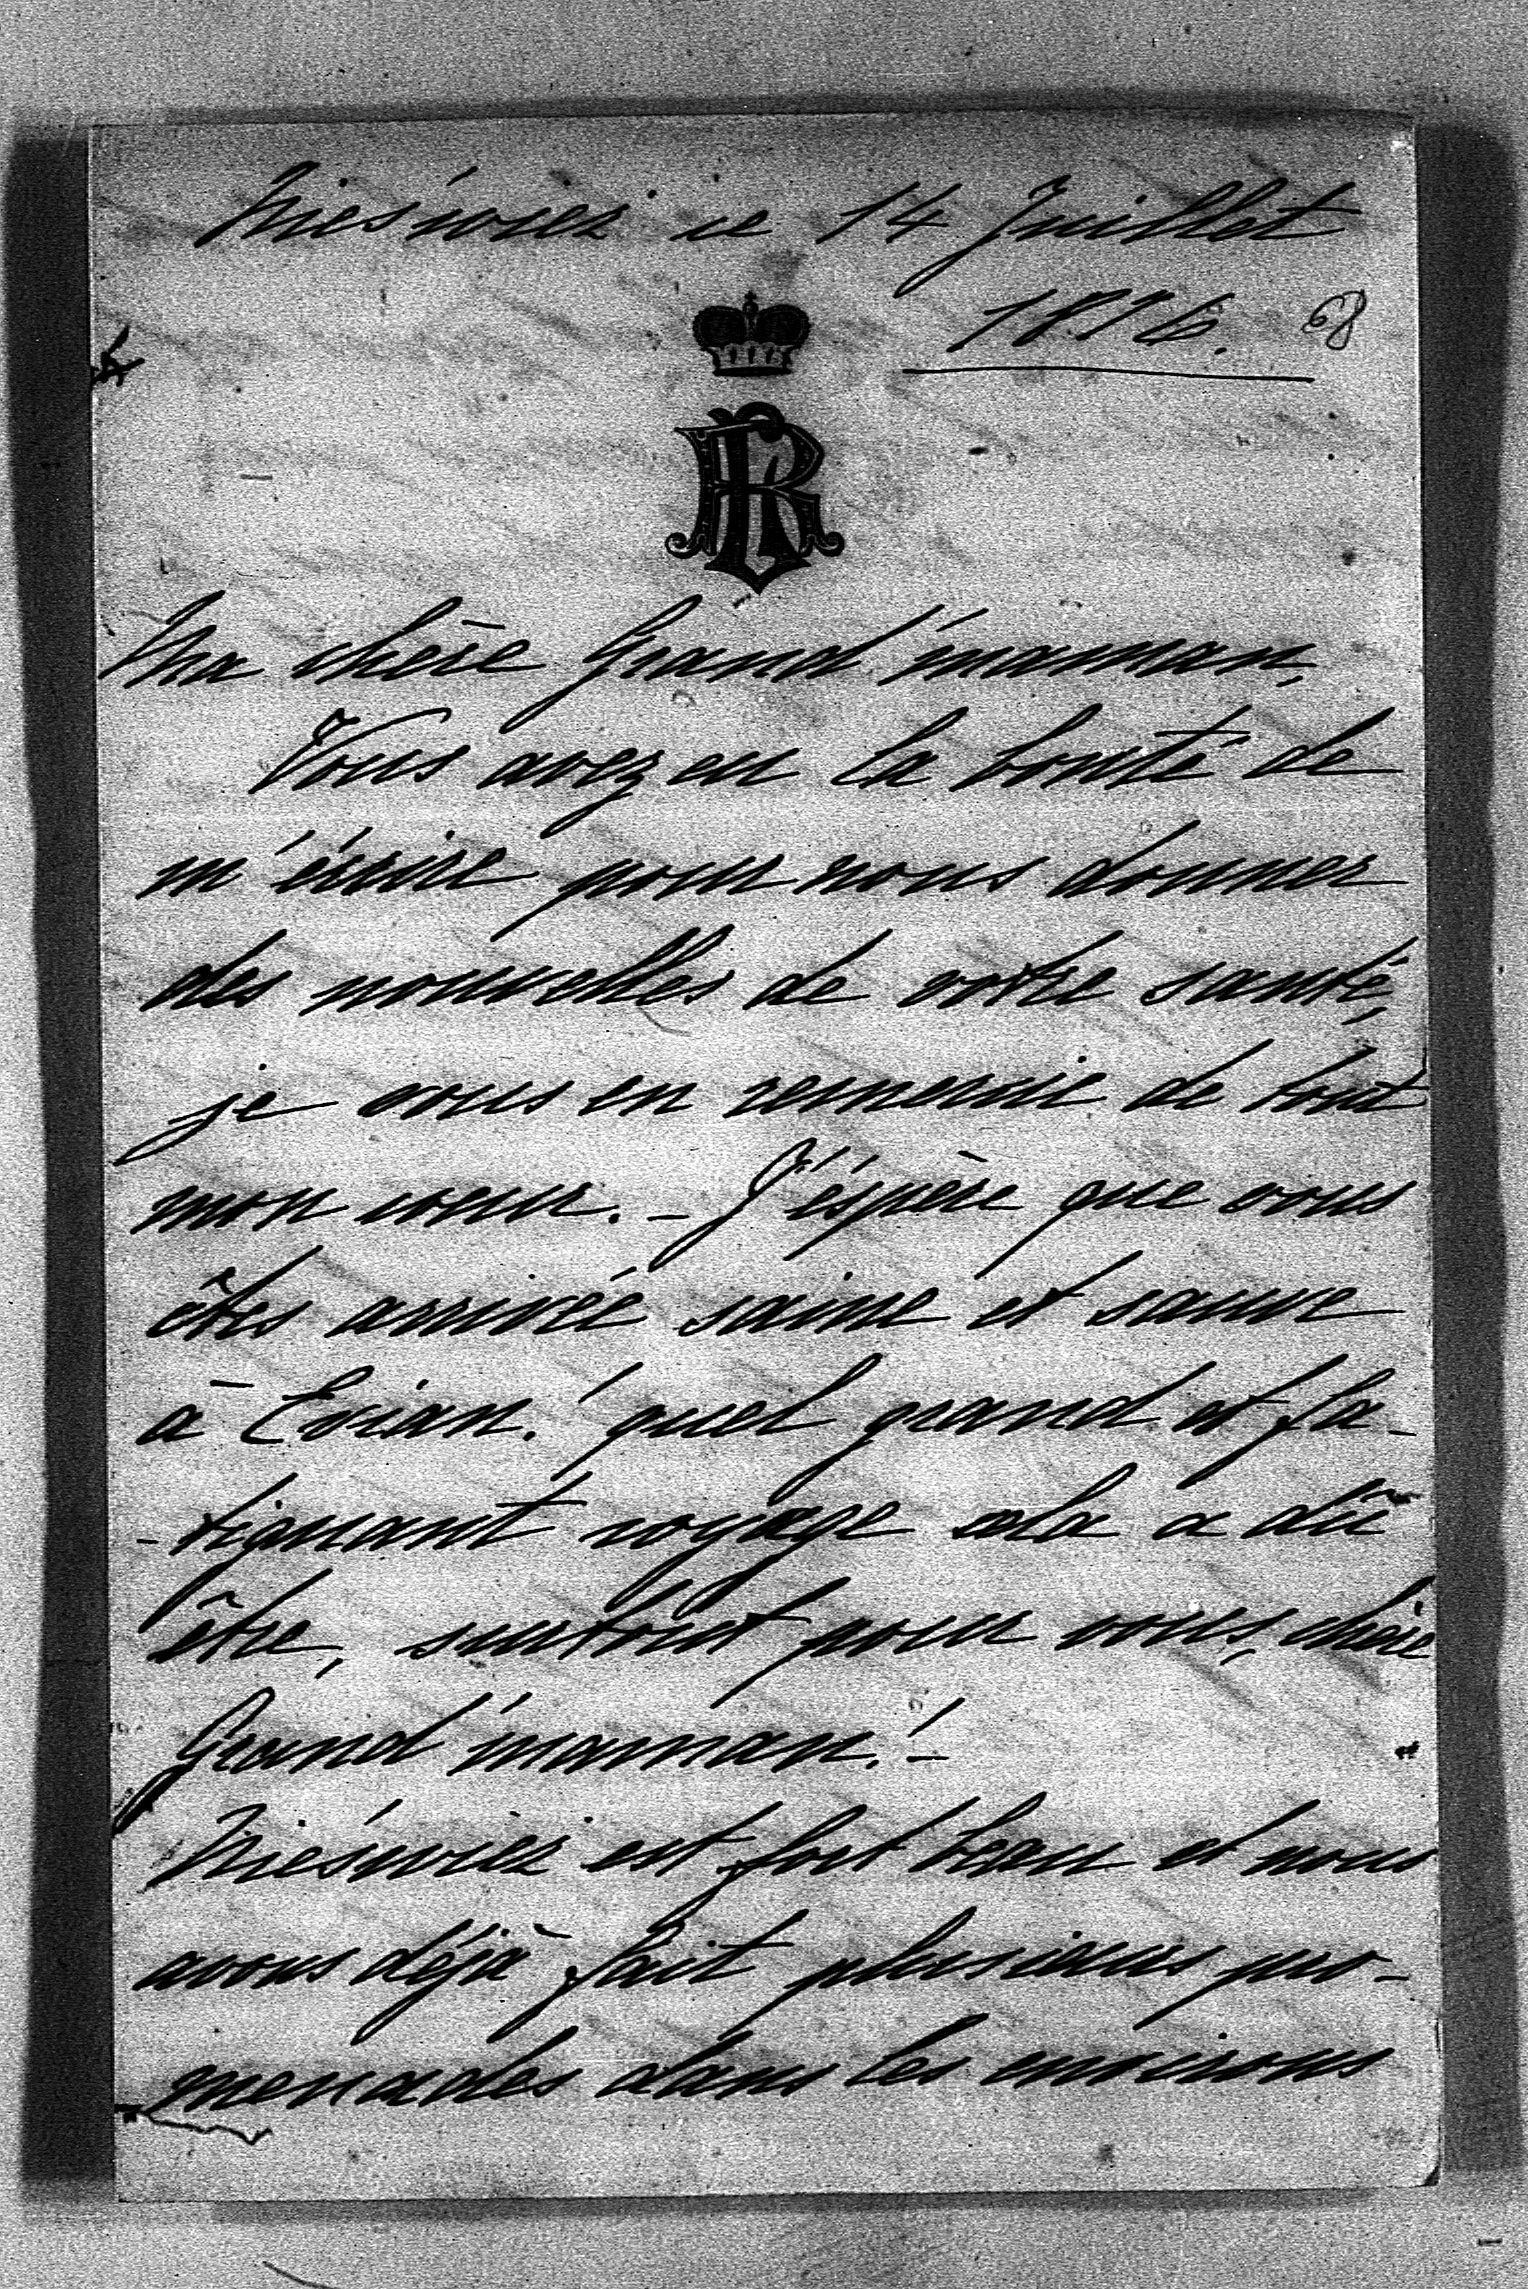 Niesvież ce 14 Juillet
1876.
68
Ma chère Grand'maman,
Vous avez eu la bonté de
m'écrire pour nous donner
des nouvelles de votre santé,
je vous en remercie de tout
mon coeur. – J'éspère que vous
êtes arrivée saine et sauve
à Evian! quel grand et fa-
-tiguant voyage cela a dû
être, surtout pour vous, chère
Grand'maman! –
Niesvież est fort beau et nous
avons déjà fait plusieurs pro-
menades dans les environs